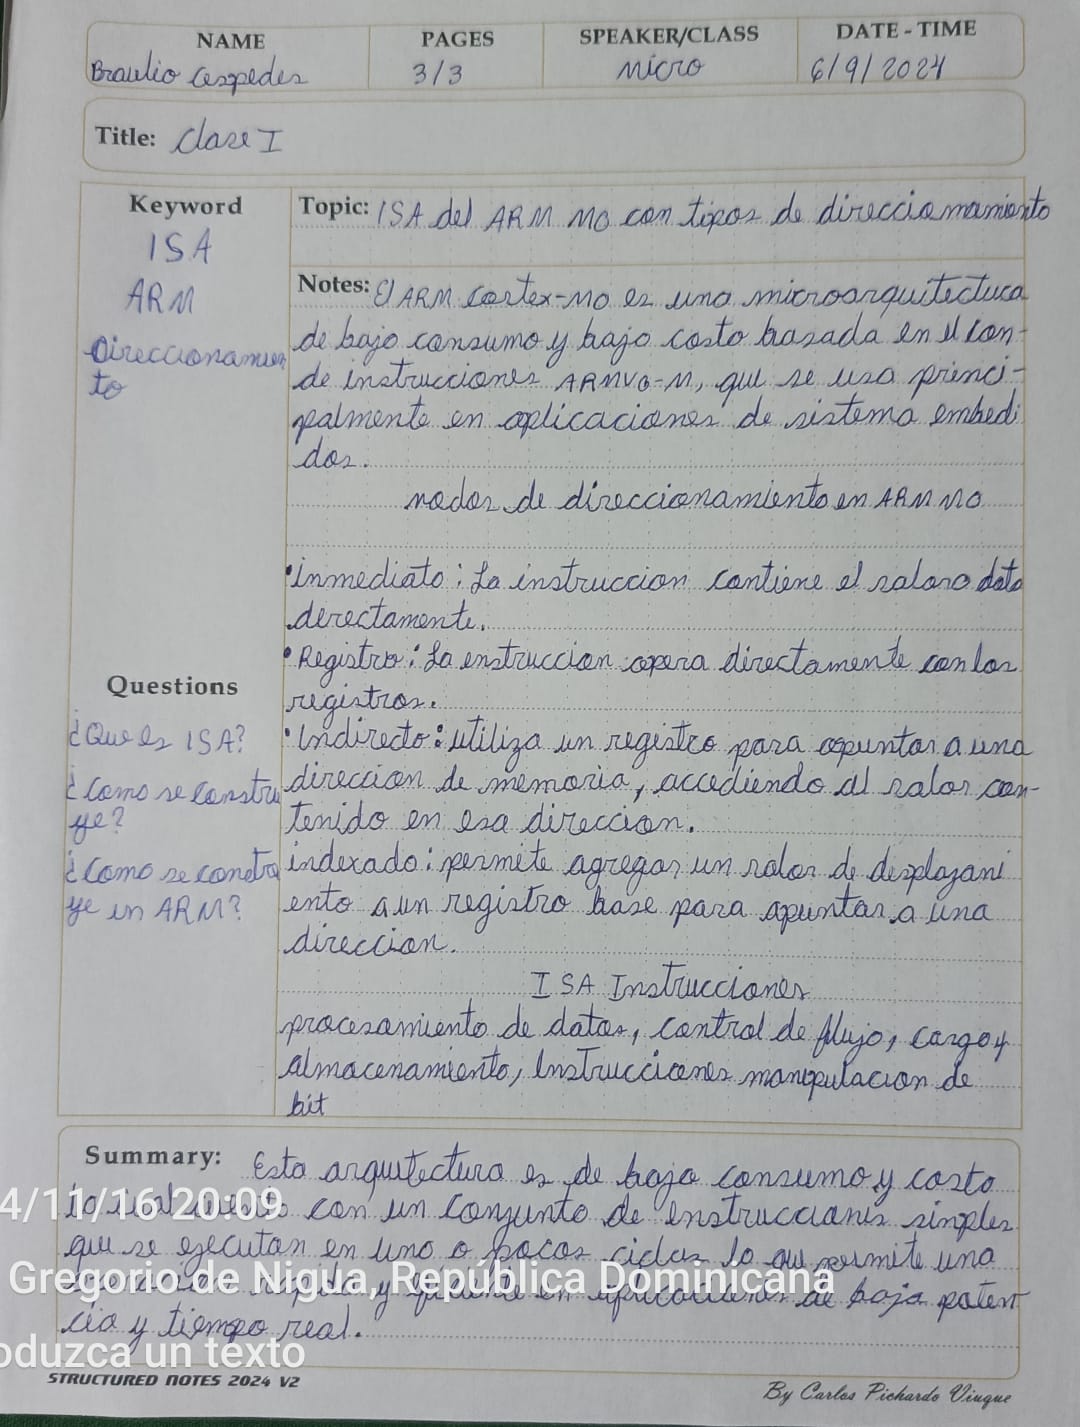 NAME PAGES SPEAKER/CLASS DATE - TIME
Braulio Cespedes 3/3 Micro 6/9/2024
Title: Clase I
Keyword
ISA
ARM
Direccionamien
to
Questions
¿Que es ISA?
¿Como se constru
ye?
¿Como se constro
ye en ARM?
Topic: ISA del ARM M0 con tipos de direccionamiento
Notes: El ARM Cortex-M0 es una microarquitectura
de bajo consumo y bajo costo basada en el con-
de instrucciones ARMV6-M, que se usa princi-
palmente en aplicaciones de sistema embedi
dos.
modos de direccionamiento en ARM M0
•inmediato: La instruccion contiene el valor o dato
derectamente.
•Registro: La enstruccion opera directamente con los
registros.
•Indirecto: utiliza un registro para apuntar a una
direccion de memoria, accediendo al valor con-
tenido en esa direccion.
indexado: permite agregar un valor de desplazami
ento a un registro base para apuntar a una
direccion.
ISA Instrucciones
procesamiento de datos, control de flujo, carga y
almacenamiento, Instrucciones manipulacion de
bit
Summary: Esta arquitectura es de bajo consumo y costo
con un conjunto de enstrucciones simples
que se ejecutan en uno o pocos ciclos lo que permite una
rapida y eficiente en aplicaciones de baja poten
cia y tiempo real.
4/11/16 20:09
Gregorio de Nigua, República Dominicana
oduzca un texto
STRUCTURED NOTES 2024 V2
By Carlos Pichardo Viuque